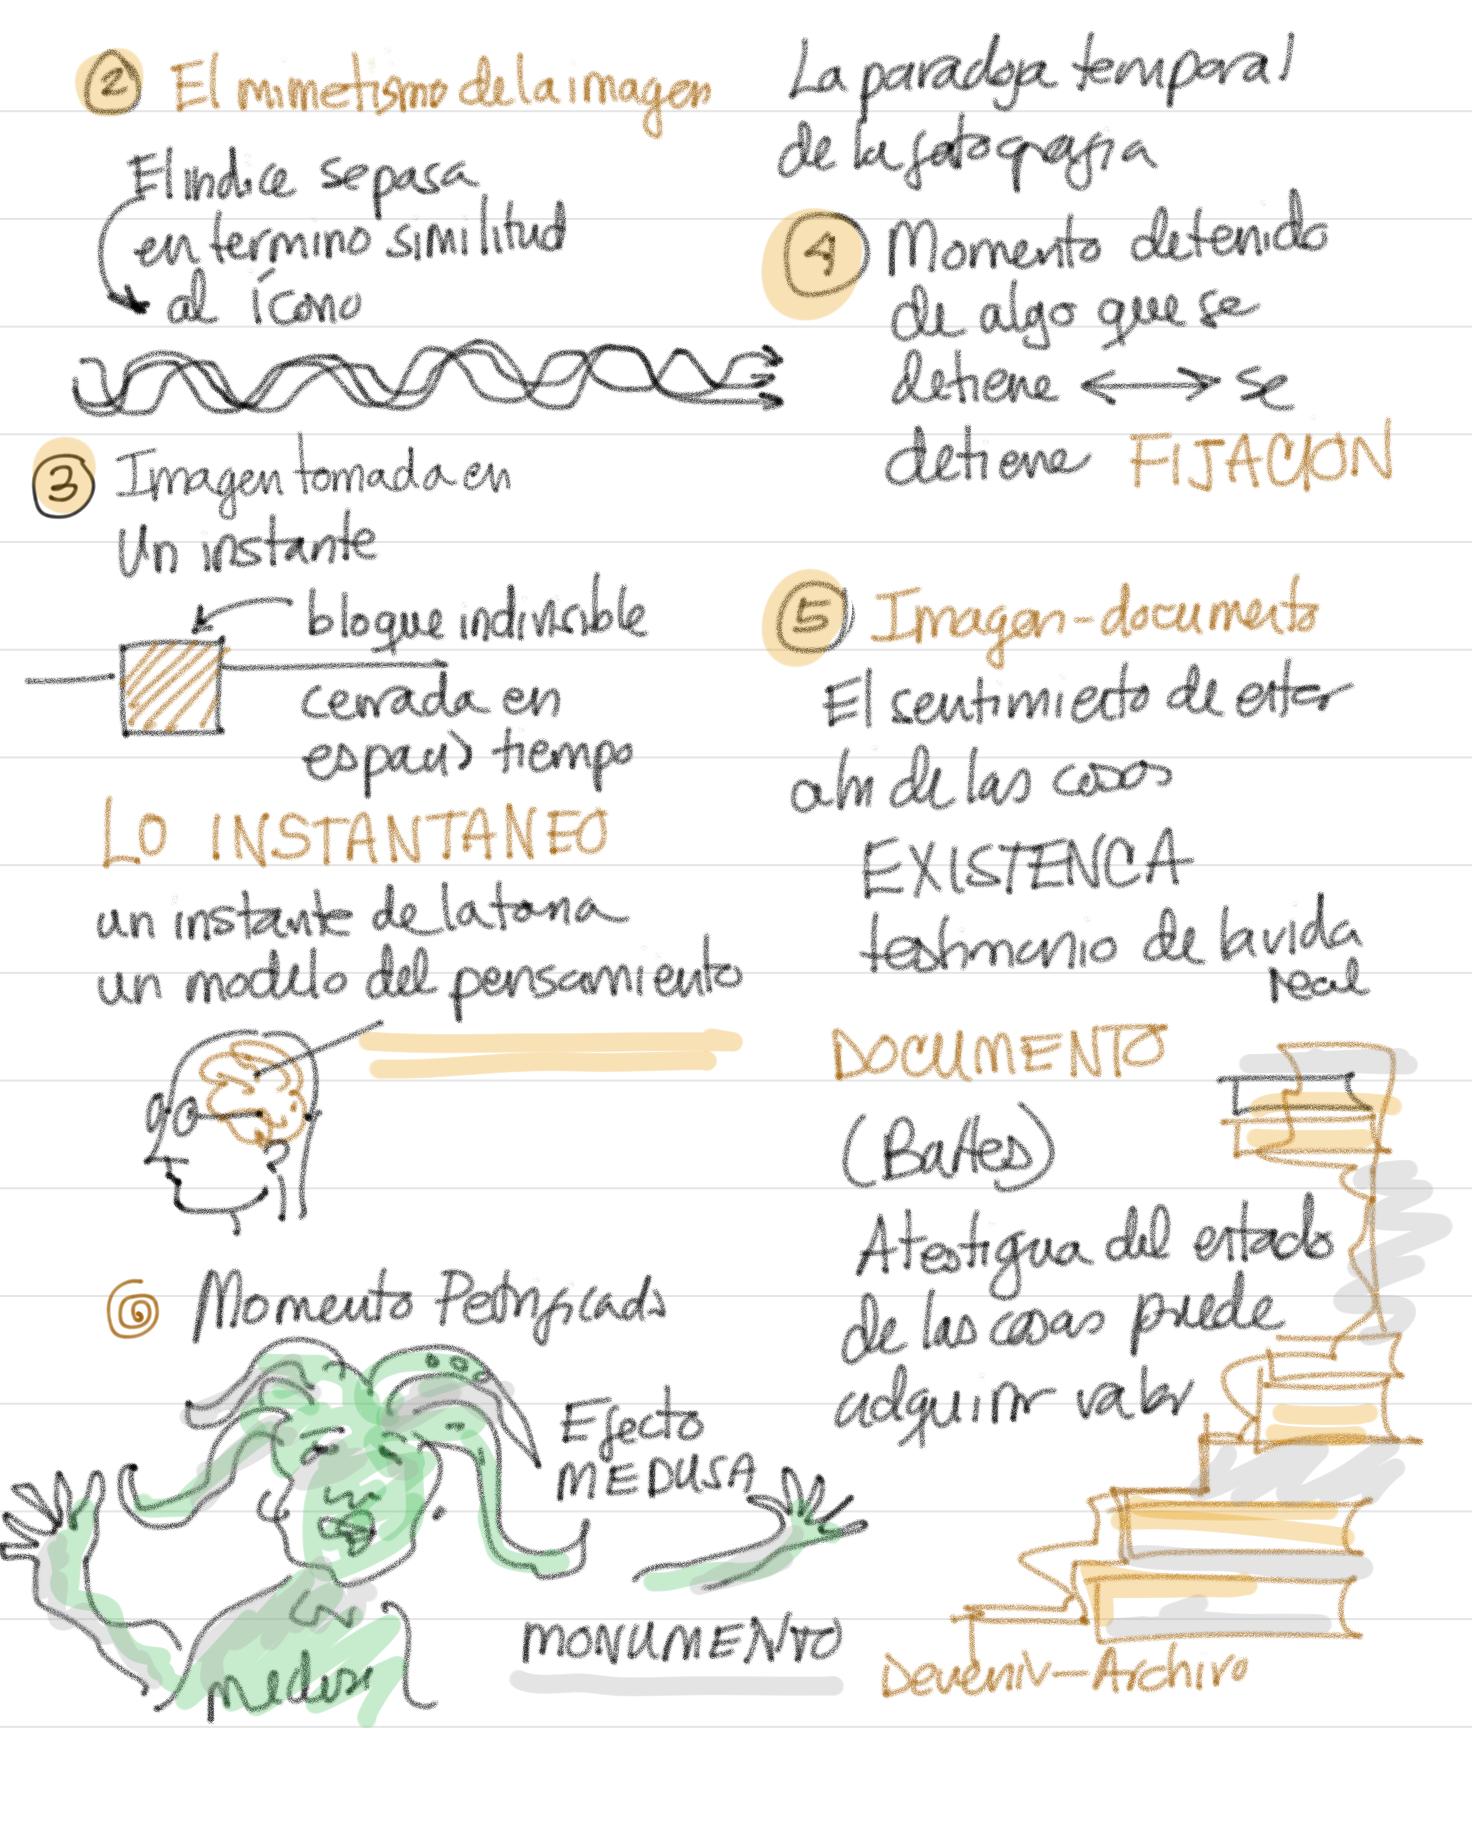 2 El mimetismo de la imagen
El indice se pasa
en termino similitud
al ícono
3 Imagen tomada en
Un instante
bloque indivisible
cerrada en
espacio tiempo
LO INSTANTANEO
un instante de la toma
un modelo del pensamiento
Momento Petrificado
Efecto
MEDUSA
MONUMENTO
medusa
La paradoja temporal
de la fotografia
4 Momento detenido
de algo que se
detiene ↔ se
detiene FIJACION
5 Imagen-documento
El sentimiento de estar
ahi de las cosas
EXISTENCA
testimonio de la vida
real
DOCUMENTO
(Bartes)
Atestigua del estado
de las cosas puede
adquirir valor
Devenir-Archivo